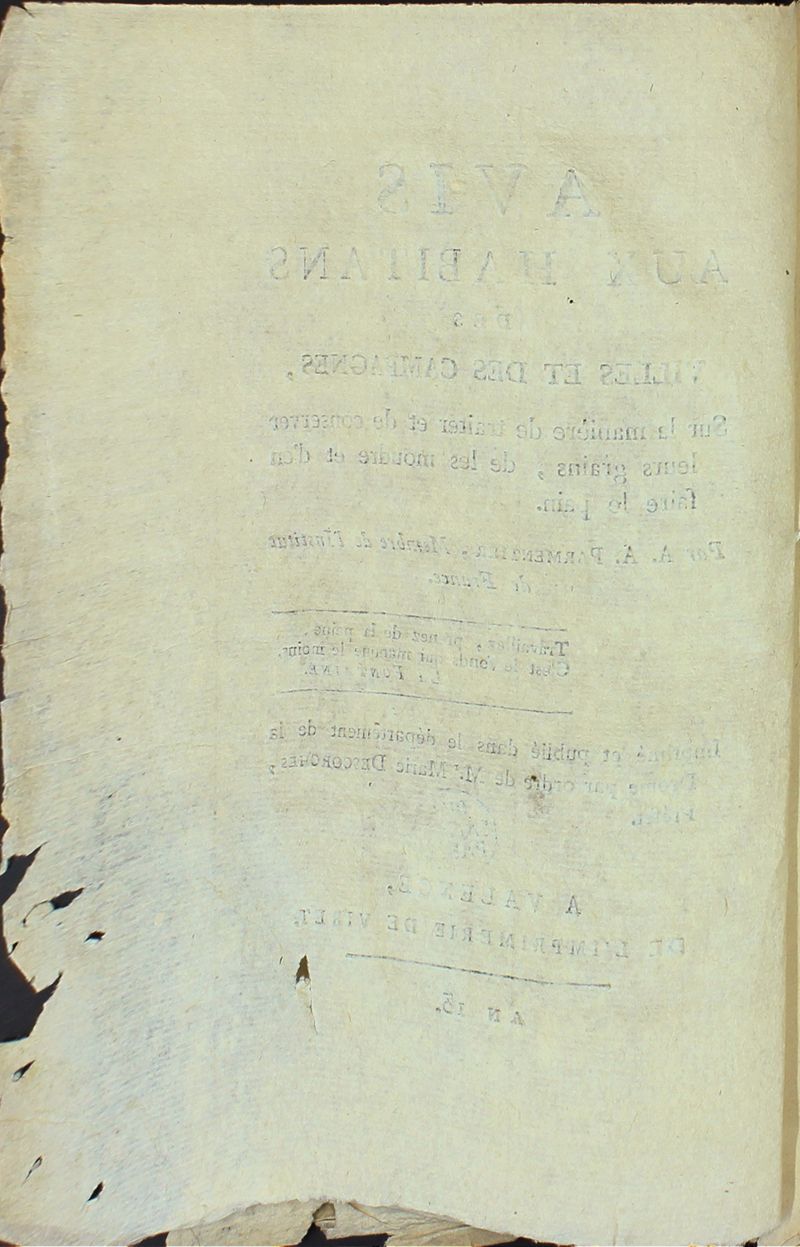 AVIS
AUX HABITANS
DES
VILLES ET DES CAMPAGNES,
Sur la manière de traiter et de conserver
leurs grains, de les moudre et d'en
faire le pain.
Par A. A. PARMENTIER, Membre de l'Institut
de France.
Travaillez, prenez de la peine,
C'est le fonds qui manque le moins.
LA FONTAINE.
Imprimé et publié dans le département de la
Drome par ordre de M.r Marie DESCORCHES,
Préfet.
A VALENCE,
DE L'IMPRIMERIE DE VIRET.
AN 13.